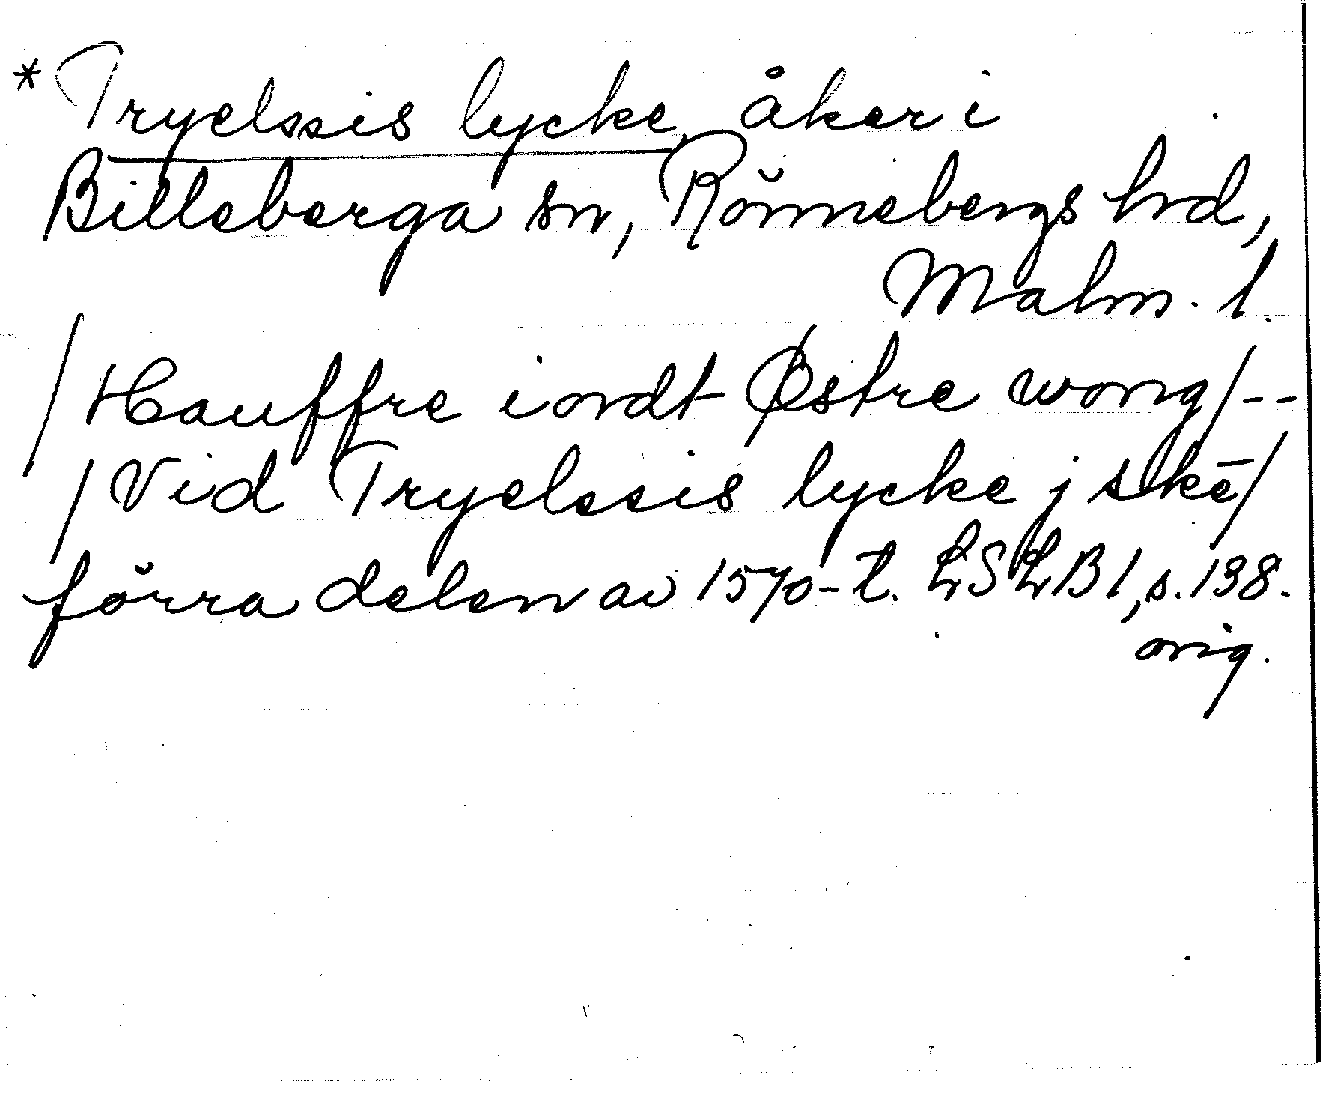 * Tryelssis lycke, åker i
Billeberga sn, Rönnebergs hrd,
Malm. l.
/Hauffre iordt Østre wong/--
/Vid Tryelssis lycke j skē/
förra delen av 1570-t. LSLB1, s. 138.
orig.